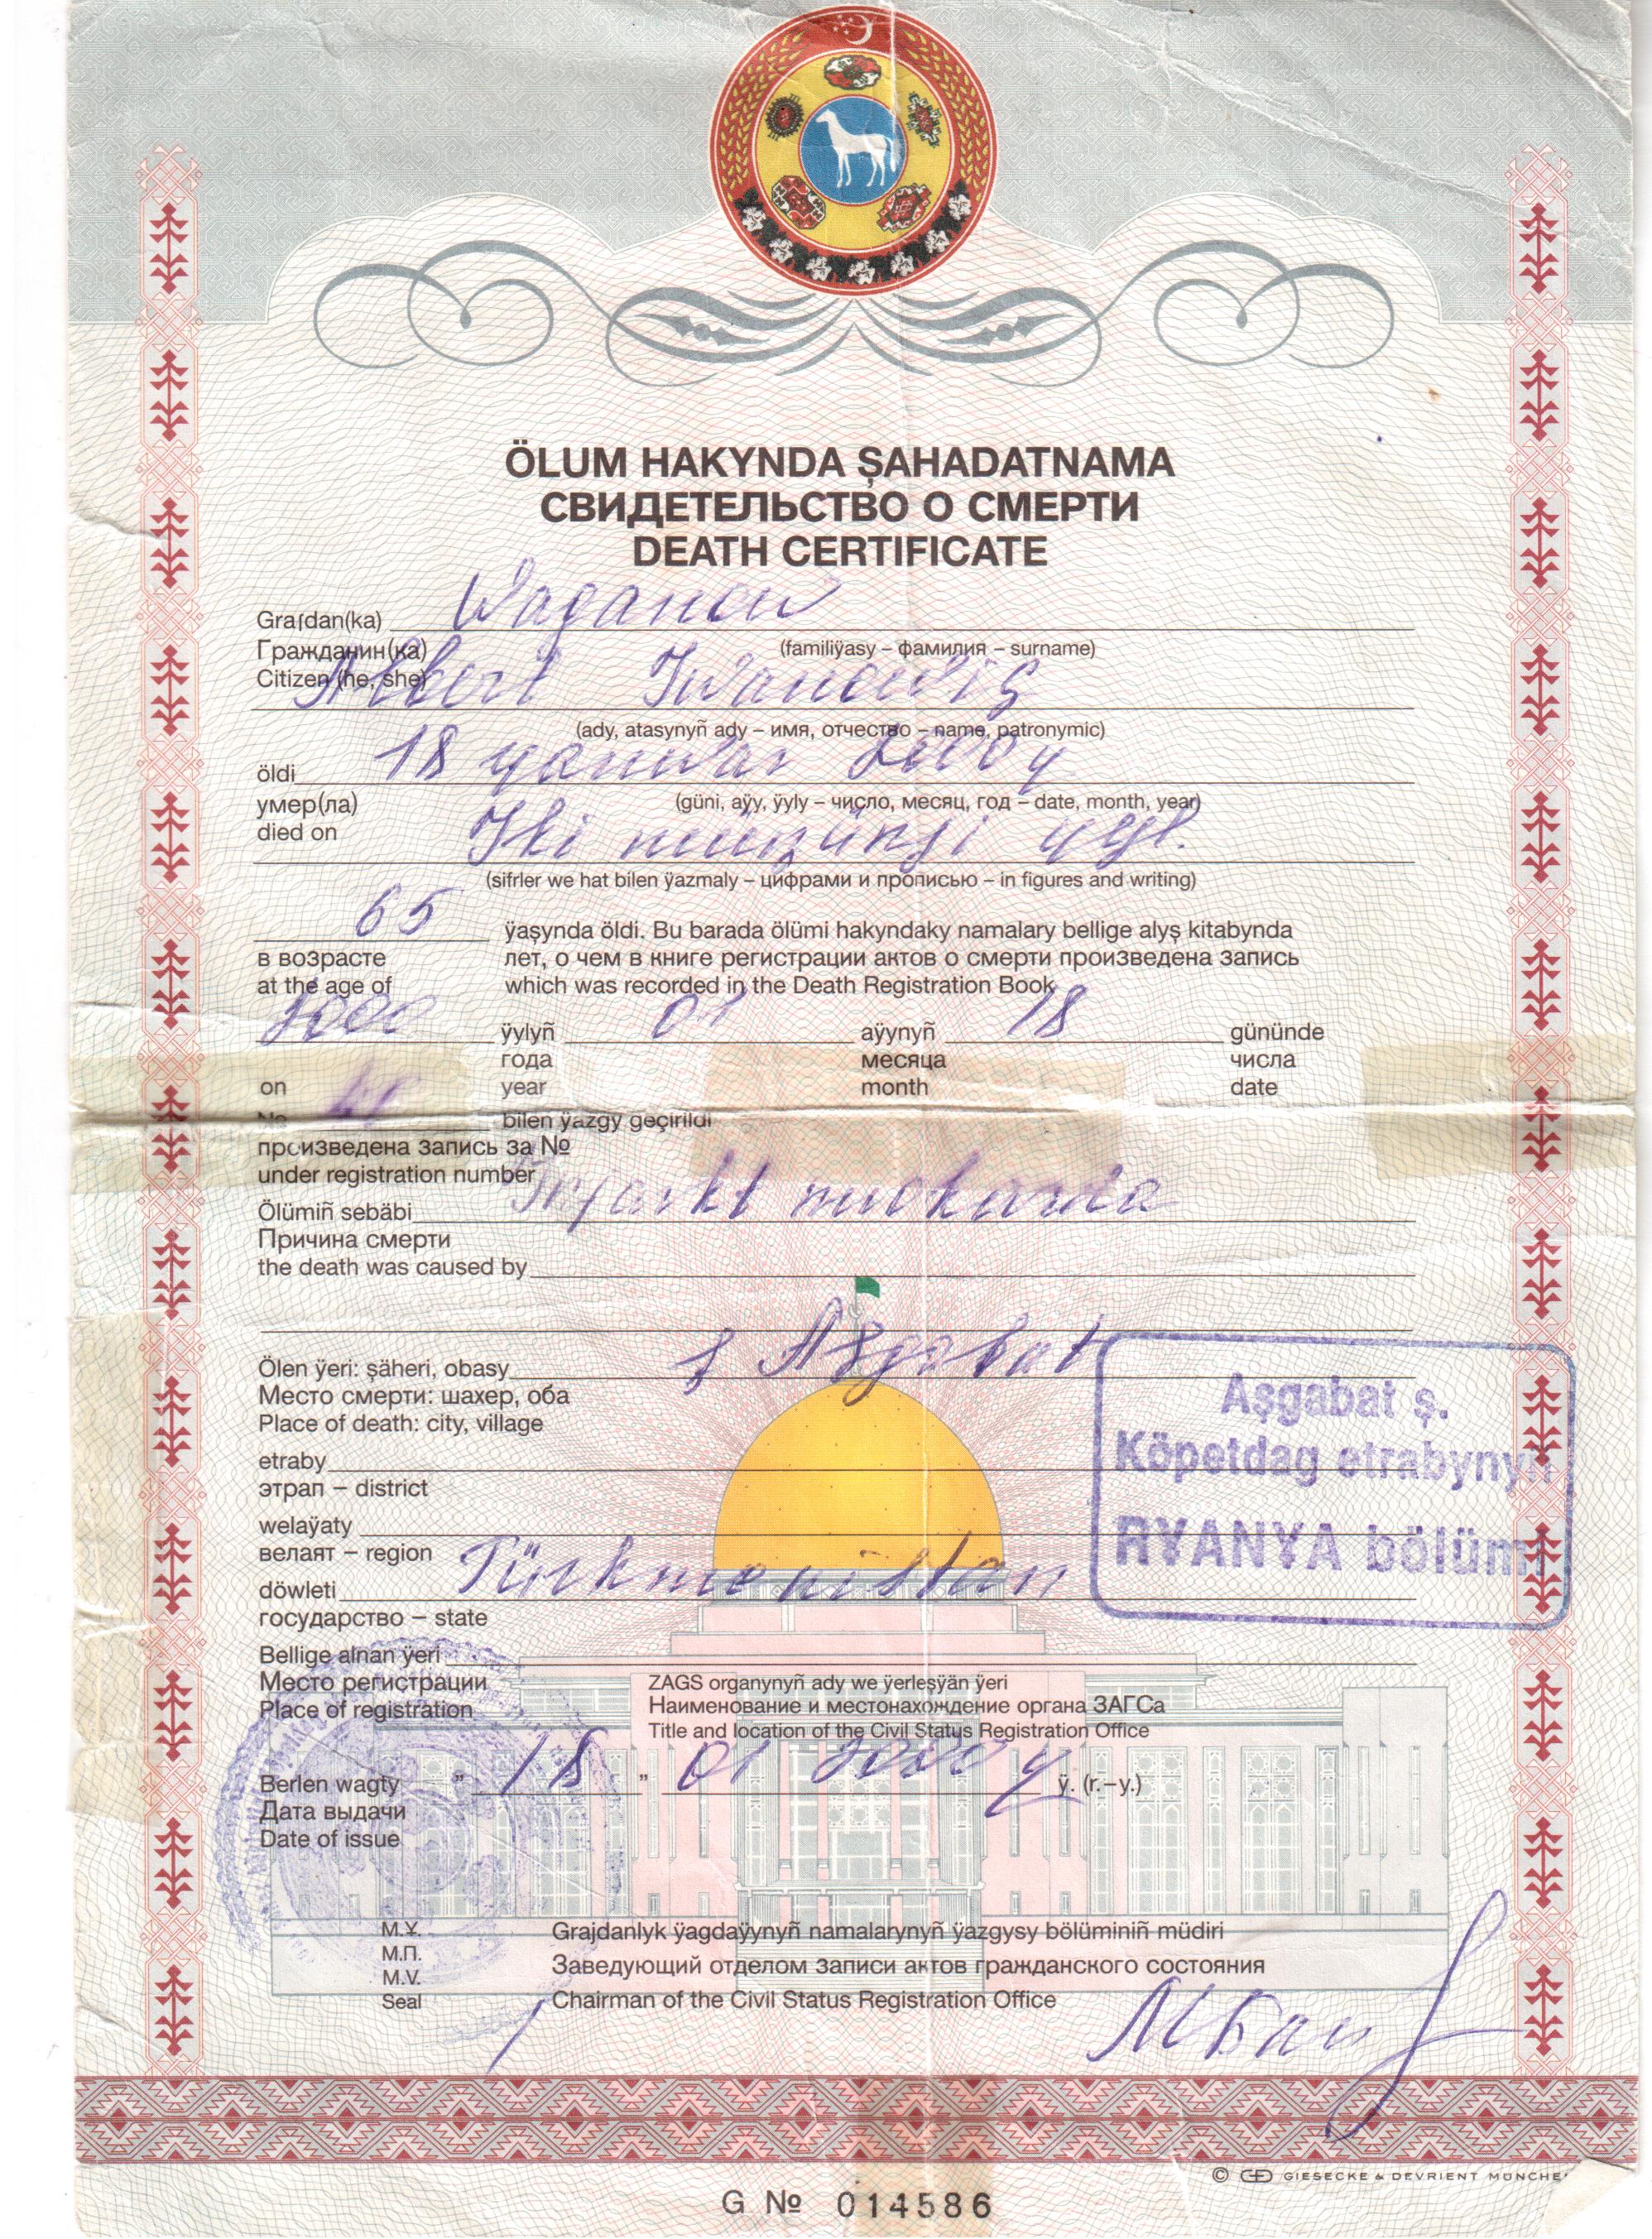 ÖLUM HAKYNDA ŞAHADATNAMA
СВИДЕТЕЛЬСТВО О СМЕРТИ
DEATH CERTIFICATE
Graſdan(ka) Waganow
Гражданин(ка) (familiÿasy – фамилия – surname)
Citizen (he, she) Albert Iwanowiç
(ady, atasynyñ ady – имя, отчество – name, patronymic)
öldi 18 ýanwar 2000 ý
умер(ла) (güni, aÿy, ÿyly – число, месяц, год – date, month, year)
died on Iki müňünji ýyl.
(sifrler we hat bilen ÿazmaly – цифрами и прописью – in figures and writing)
65 ÿaşynda öldi. Bu barada ölümi hakyndaky namalary bellige alyş kitabynda
в возрасте лет, о чем в книге регистрации актов о смерти произведена запись
at the age of which was recorded in the Death Registration Book
2000 ÿylyñ 01 aÿynyñ 18 gününde
года месяца числа
on year month date
№ bilen ÿazgy geçirildi
произведена запись за №
under registration number
Ölümiñ sebäbi Infarkt miokarda
Причина смерти
the death was caused by
Ölen ÿeri: şäheri, obasy ş Aşgabat
Место смерти: шахер, оба
Place of death: city, village
etraby
этрап – district
welaÿaty
велаят – region
döwleti Türkmenistan
государство – state
Aşgabat ş.
Köpetdag etrabynyñ
RYANYA bölümi
Bellige alnan ÿeri
Место регистрации ZAGS organynyñ ady we ÿerleşÿän ÿeri
Place of registration Наименование и местонахождение органа ЗАГСа
Title and location of the Civil Status Registration Office
Berlen wagty " 18 " 01 2000 ý ÿ. (г.–y.)
Дата выдачи
Date of issue
M.Ұ. Grajdanlyk ÿagdaÿynyñ namalarynyñ ÿazgysy bölüminiñ müdiri
М.П. Заведующий отделом записи актов гражданского состояния
M.V.
Seal Chairman of the Civil Status Registration Office
© GD GIESECKE & DEVRIENT MÜNCHE
G № 014586